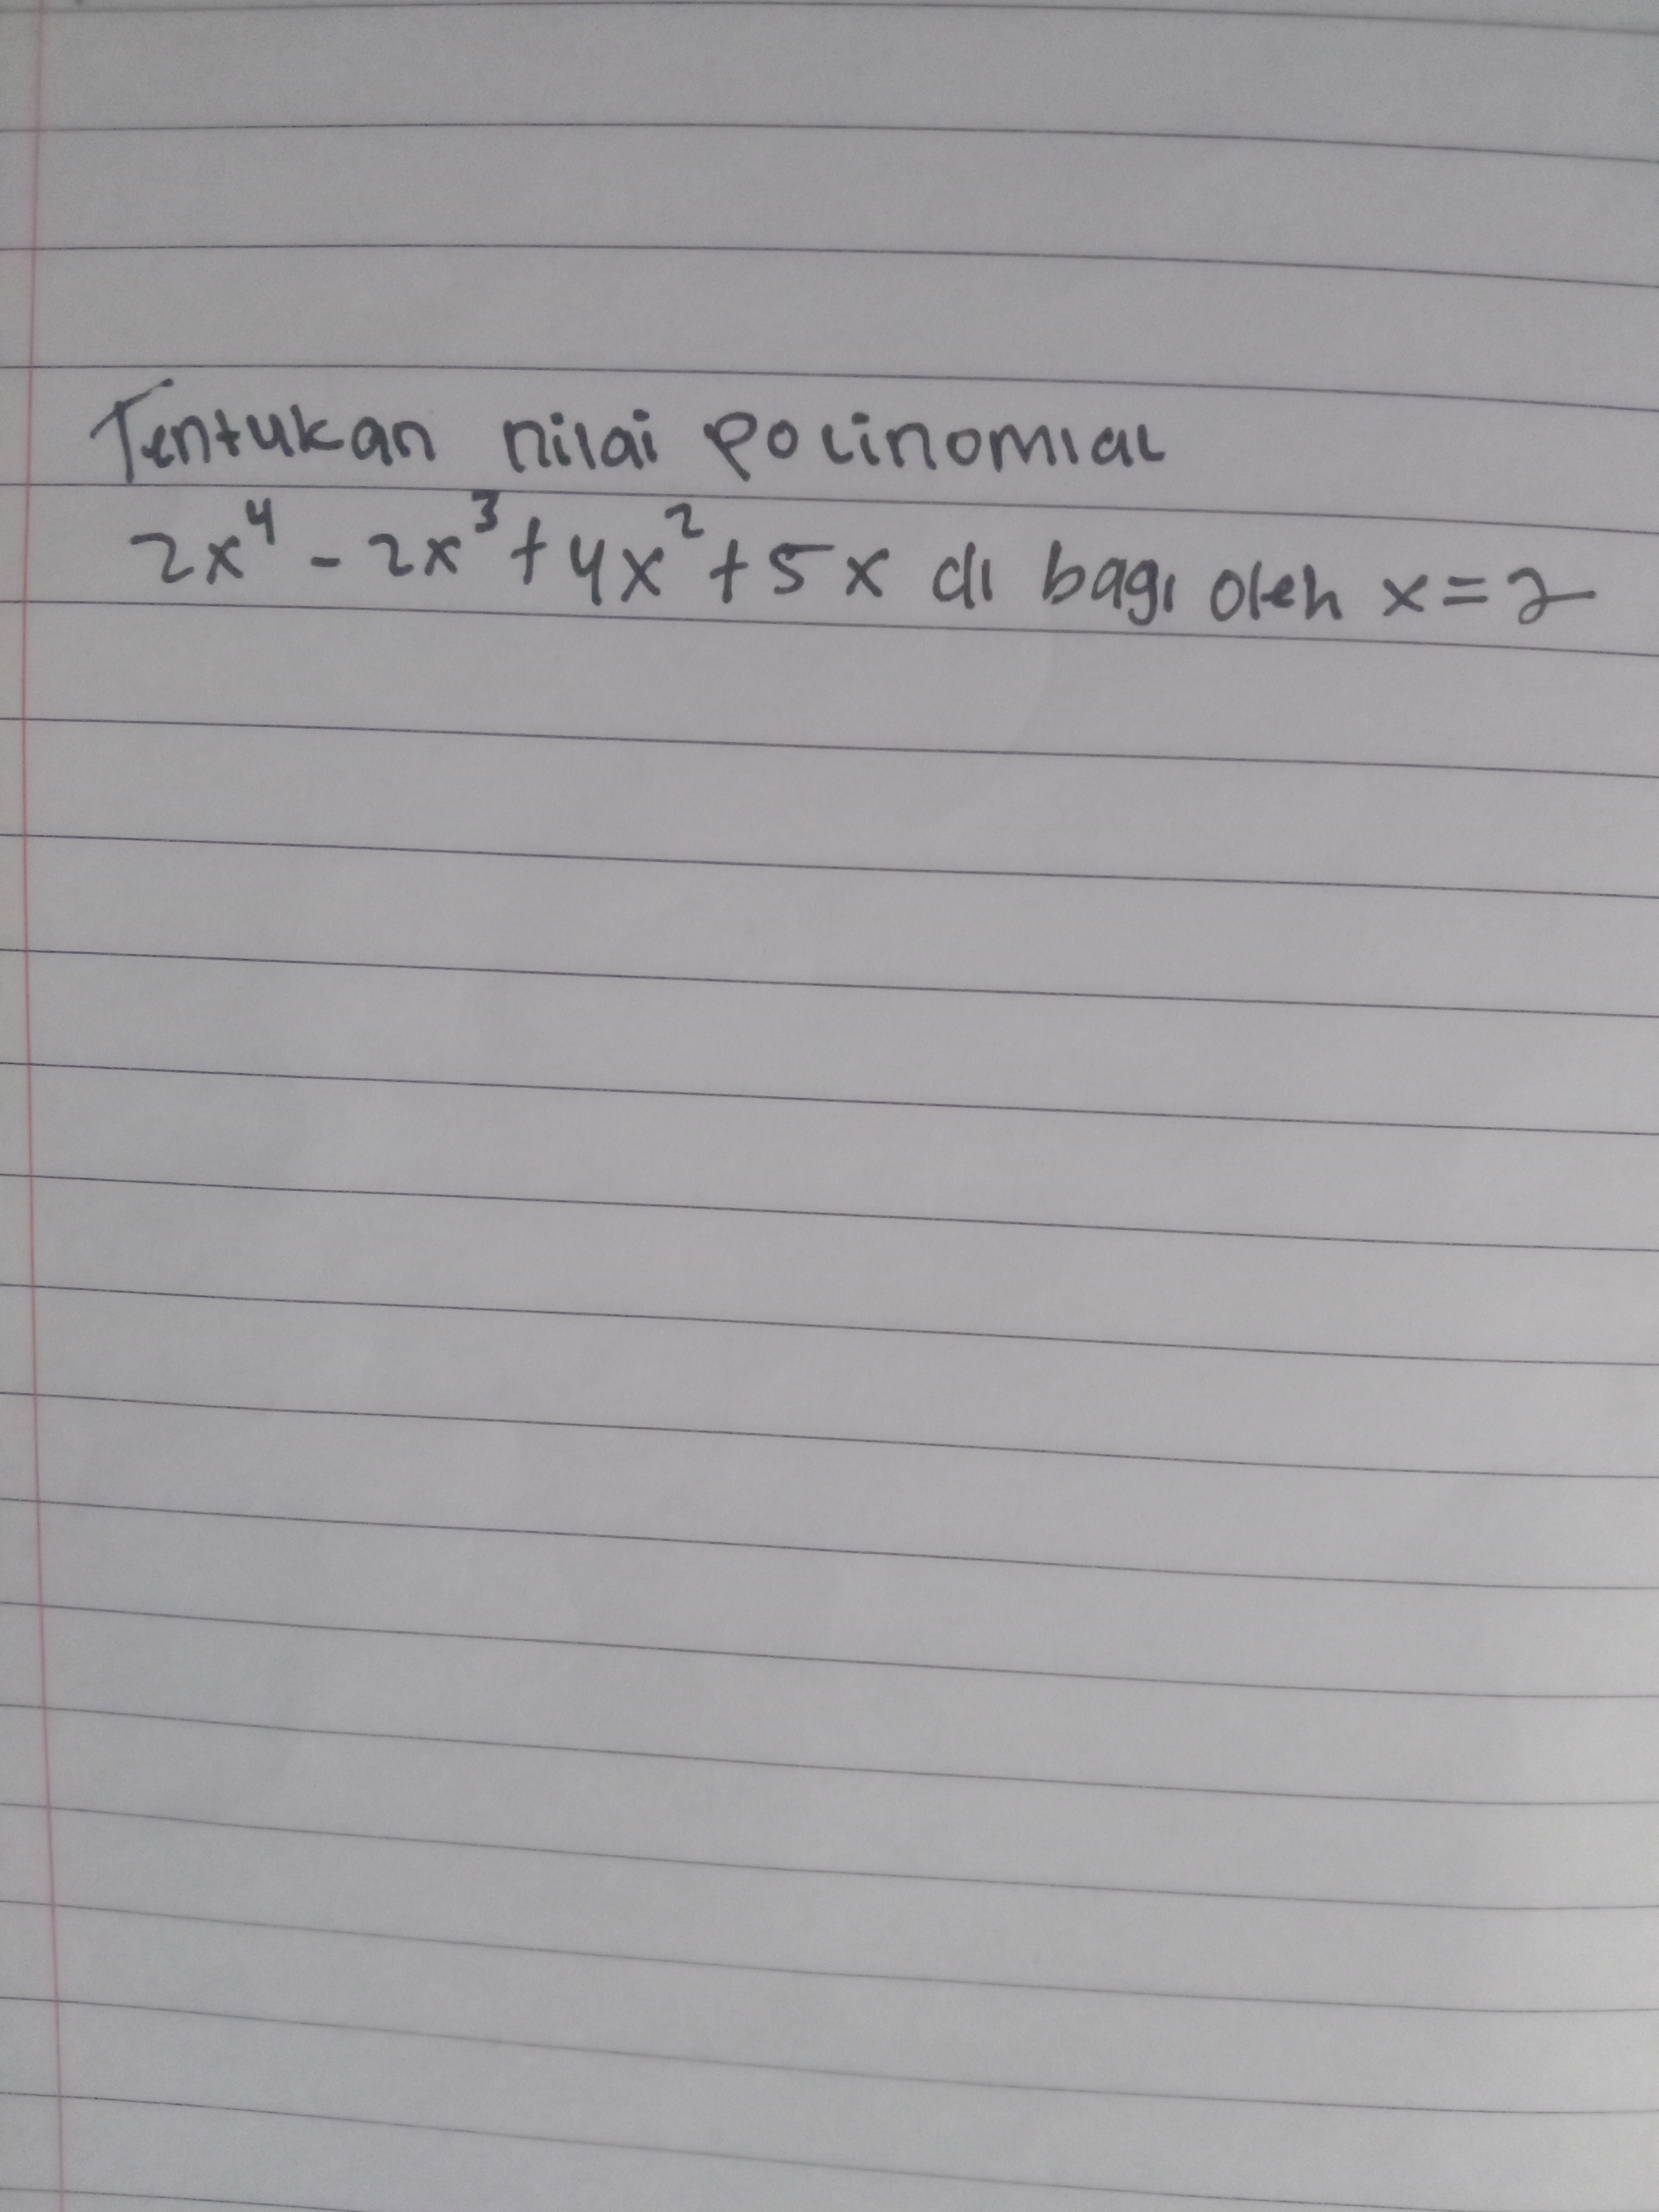 Tentukan nilai polinomial
2x⁴ - 2x³ + 4x² + 5x di bagi oleh x = 2